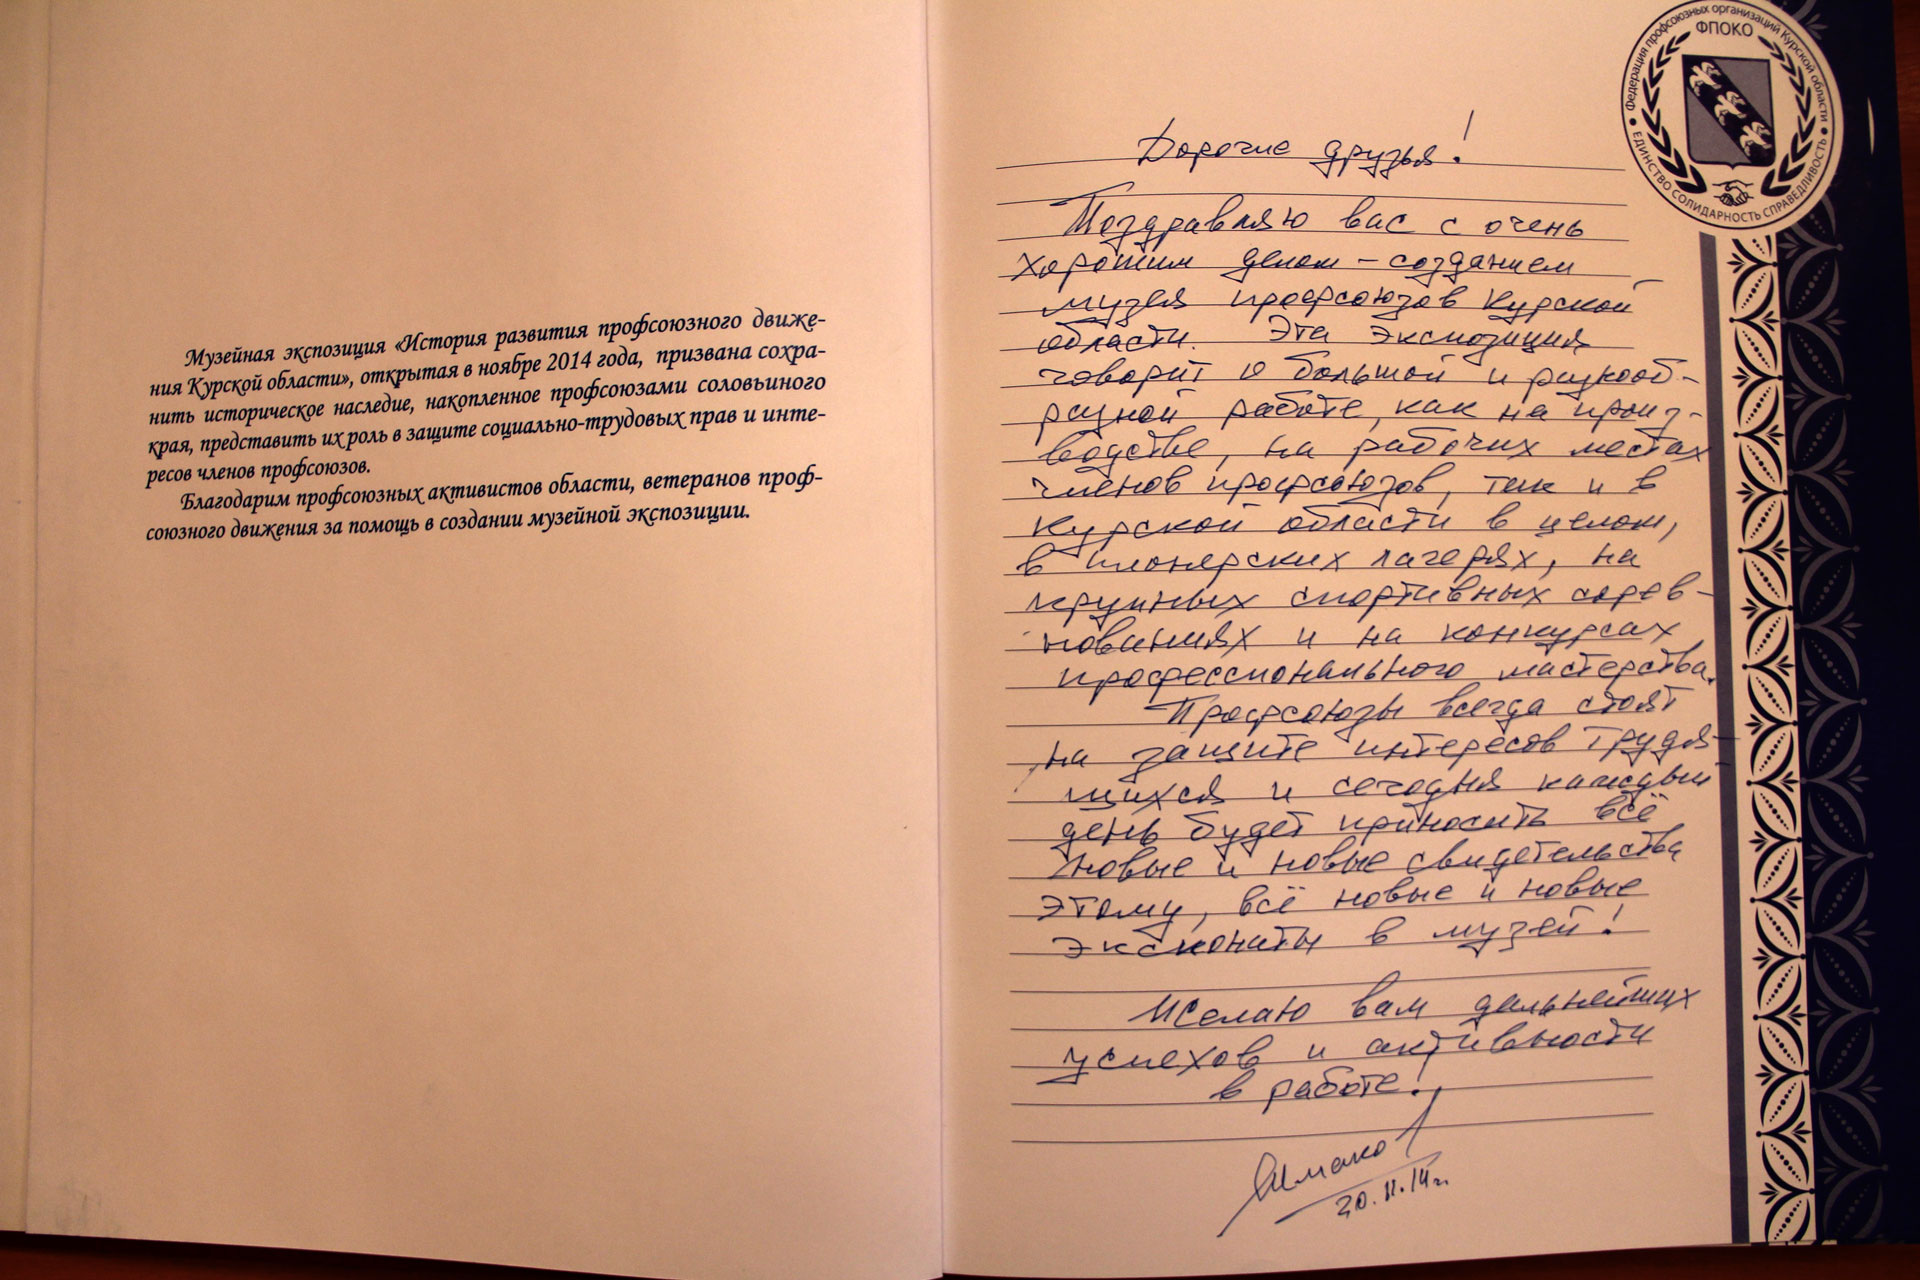 Музейная экспозиция «История развития профсоюзного движе-
ния Курской области», открытая в ноябре 2014 года, призвана сохра-
нить историческое наследие, накопленное профсоюзами соловьиного
края, представить их роль в защите социально-трудовых прав и инте-
ресов членов профсоюзов.
Благодарим профсоюзных активистов области, ветеранов проф-
союзного движения за помощь в создании музейной экспозиции.
Федерация профсоюзных организаций Курской области
ФПОКО
ЕДИНСТВО СОЛИДАРНОСТЬ СПРАВЕДЛИВОСТЬ
Дорогие друзья!
Поздравляю вас с очень
хорошим делом – созданием
музея профсоюзов Курской
области. Эта экспозиция
говорит о большой и разнооб-
разной работе, как на произ-
водстве, на рабочих местах
членов профсоюзов, так и в
Курской области в целом,
в пионерских лагерях, на
крупных спортивных сорев-
нованиях и на конкурсах
профессионального мастерства.
Профсоюзы всегда стоят
на защите интересов трудя-
щихся и сегодня каждый
день будет приносить всё
новые и новые свидетельства
этому, всё новые и новые
экспонаты в музей!
Желаю вам дальнейших
успехов и активности
в работе!
20.11.14г.